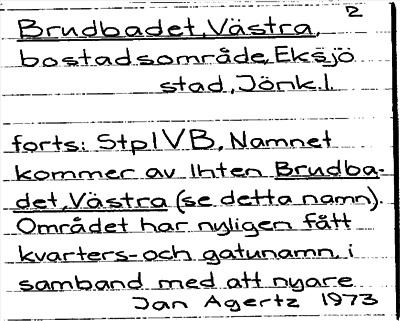 2
Brudbadet, Västra,
bostadsområde, Eksjö
stad, Jönk.l.
forts: StplVB, Namnet
kommer av Ihten Brudba-
det, Västra (se detta namn).
Området har nyligen fått
kvarters- och gatunamn, i
samband med att nyare
Jan Agertz 1973